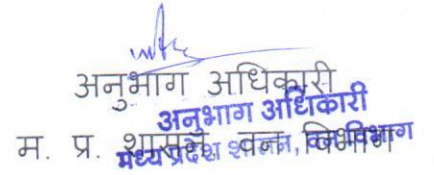 अनुभाग अधिकारी
अनुभाग अधिकारी
म. प्र. शासन, वन विभाग
मध्य प्रदेश शासन, वन विभाग